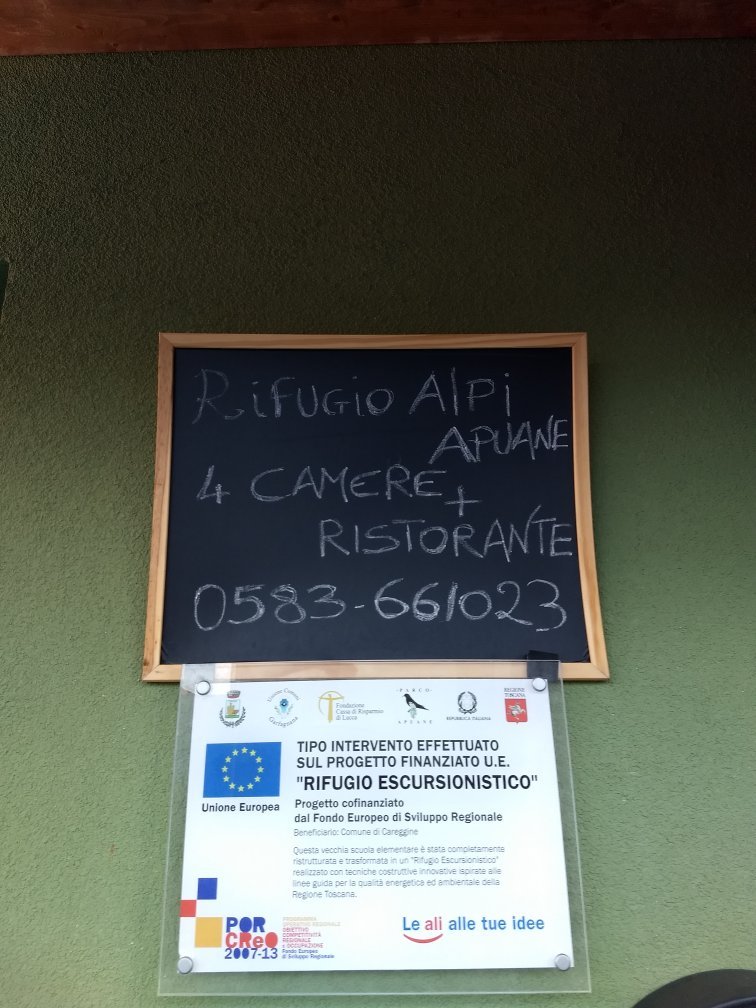 RiFUGiO AlPi
APUANE
4 CAMERE
+
RISTORANTE
0583-661023
Unione Comuni
Garfagnana
Fondazione
Cassa di Risparmio
di Lucca
PARCO
APUANE
REPUBBLICA ITALIANA
REGIONE
TOSCANA
Unione Europea
TIPO INTERVENTO EFFETTUATO
SUL PROGETTO FINANZIATO U.E.
"RIFUGIO ESCURSIONISTICO"
Progetto cofinanziato
dal Fondo Europeo di Sviluppo Regionale
Beneficiario: Comune di Careggine
Questa vecchia scuola elementare è stata completamente
ristrutturata e trasformata in un "Rifugio Escursionistico"
realizzato con tecniche costruttive innovative ispirate alle
linee guida per la qualità energetica ed ambientale della
Regione Toscana.
POR
CReO
2007-13
PROGRAMMA
OPERATIVO REGIONALE
OBIETTIVO
COMPETITIVITÀ
REGIONALE
e OCCUPAZIONE
Fondo Europeo
di Sviluppo Regionale
Le ali alle tue idee